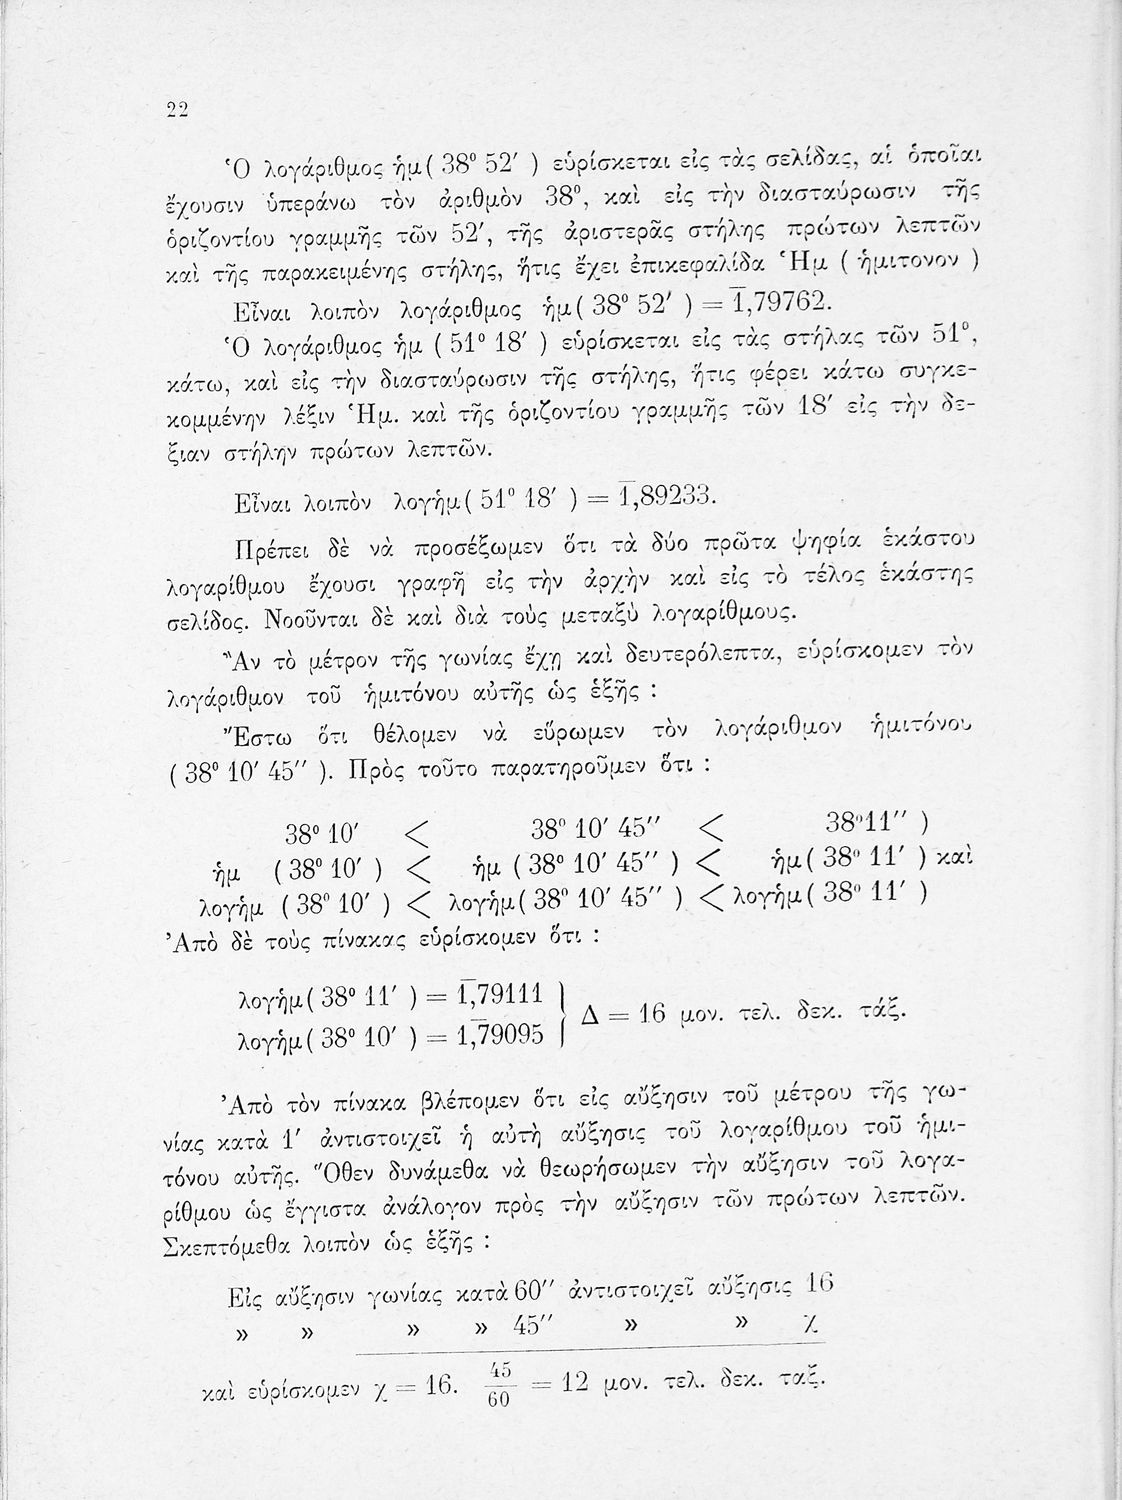 22
Ὁ λογάριθμος ἡμ( 38° 52′ ) εὑρίσκεται εἰς τὰς σελίδας, αἱ ὁποῖαι
ἔχουσιν ὑπεράνω τὸν ἀριθμὸν 38°, καὶ εἰς τὴν διασταύρωσιν τῆς
ὁριζοντίου γραμμῆς τῶν 52′, τῆς ἀριστερᾶς στήλης πρώτων λεπτῶν
καὶ τῆς παρακειμένης στήλης, ἥτις ἔχει ἐπικεφαλίδα Ἡμ ( ἡμιτονον )
Εἶναι λοιπὸν λογάριθμος ἡμ( 38° 52′ ) = 1̅,79762.
Ὁ λογάριθμος ἡμ ( 51° 18′ ) εὑρίσκεται εἰς τὰς στήλας τῶν 51°,
κάτω, καὶ εἰς τὴν διασταύρωσιν τῆς στήλης, ἥτις φέρει κάτω συγκε-
κομμένην λέξιν Ἡμ. καὶ τῆς ὁριζοντίου γραμμῆς τῶν 18′ εἰς τὴν δε-
ξιαν στήλην πρώτων λεπτῶν.
Εἶναι λοιπὸν λογἡμ( 51° 18′ ) = 1̅,89233.
Πρέπει δὲ νὰ προσέξωμεν ὅτι τὰ δύο πρῶτα ψηφία ἑκάστου
λογαρίθμου ἔχουσι γραφῆ εἰς τὴν ἀρχὴν καὶ εἰς τὸ τέλος ἑκάστης
σελίδος. Νοοῦνται δὲ καὶ διὰ τοὺς μεταξὺ λογαρίθμους.
Ἂν τὸ μέτρον τῆς γωνίας ἔχῃ καὶ δευτερόλεπτα, εὑρίσκομεν τὸν
λογάριθμον τοῦ ἡμιτόνου αὐτῆς ὡς ἑξῆς :
Ἔστω ὅτι θέλομεν νὰ εὕρωμεν τὸν λογάριθμον ἡμιτόνου
( 38° 10′ 45″ ). Πρὸς τοῦτο παρατηροῦμεν ὅτι :
38° 10′ < 38° 10′ 45″ < 38°11″ )
ἡμ ( 38° 10′ ) < ἡμ ( 38° 10′ 45″ ) < ἡμ( 38° 11′ ) καὶ
λογἡμ ( 38° 10′ ) < λογἡμ( 38° 10′ 45″ ) < λογἡμ( 38° 11′ )
Ἀπὸ δὲ τοὺς πίνακας εὑρίσκομεν ὅτι :
λογἡμ( 38° 11′ ) = 1̅,79111
λογἡμ( 38° 10′ ) = 1̅,79095 } Δ = 16 μον. τελ. δεκ. τάξ.
Ἀπὸ τὸν πίνακα βλέπομεν ὅτι εἰς αὔξησιν τοῦ μέτρου τῆς γω-
νίας κατὰ 1′ ἀντιστοιχεῖ ἡ αὐτὴ αὔξησις τοῦ λογαρίθμου τοῦ ἡμι-
τόνου αὐτῆς. Ὅθεν δυνάμεθα νὰ θεωρήσωμεν τὴν αὔξησιν τοῦ λογα-
ρίθμου ὡς ἔγγιστα ἀνάλογον πρὸς τὴν αὔξησιν τῶν πρώτων λεπτῶν.
Σκεπτόμεθα λοιπὸν ὡς ἑξῆς :
Εἰς αὔξησιν γωνίας κατὰ 60″ ἀντιστοιχεῖ αὔξησις 16
» » » » 45″ » » χ
καὶ εὑρίσκομεν χ = 16. 45/60 = 12 μον. τελ. δεκ. ταξ.